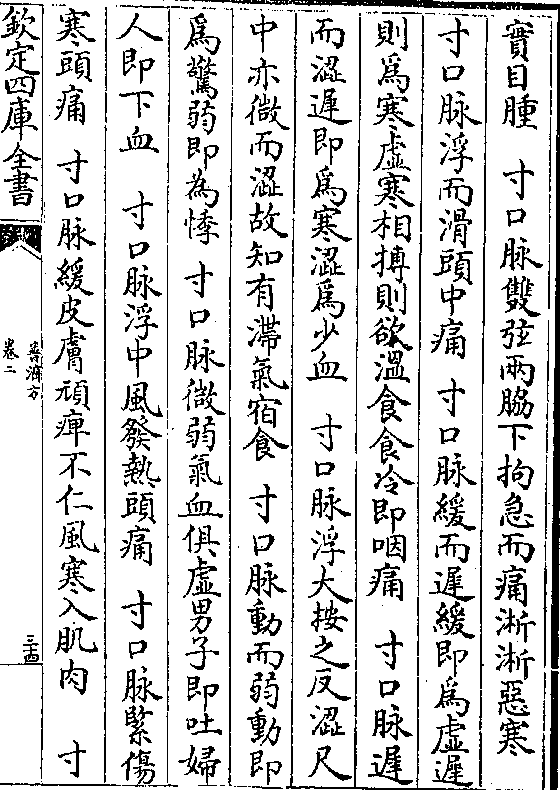 實目腫　寸口脉雙弦兩脇下拘急而痛淅淅惡寒
寸口脉浮而滑頭中痛　寸口脉緩而遲緩即爲虛遲
則爲寒虛寒相搏則欲溫食食冷即咽痛　寸口脉遲
而澀遲即爲寒澀爲少血　寸口脉浮大按之反澀尺
中亦微而澀故知有滯氣宿食　寸口脉動而弱動即
爲驚弱即為悸　寸口脉微弱氣血俱虛男子即吐婦
人即下血　寸口脉浮中風發熱頭痛　寸口脉緊傷
寒頭痛　寸口脉緩皮膚頑痺不仁風寒入肌肉　寸
欽定四庫全書
普濟方
卷二
三十四